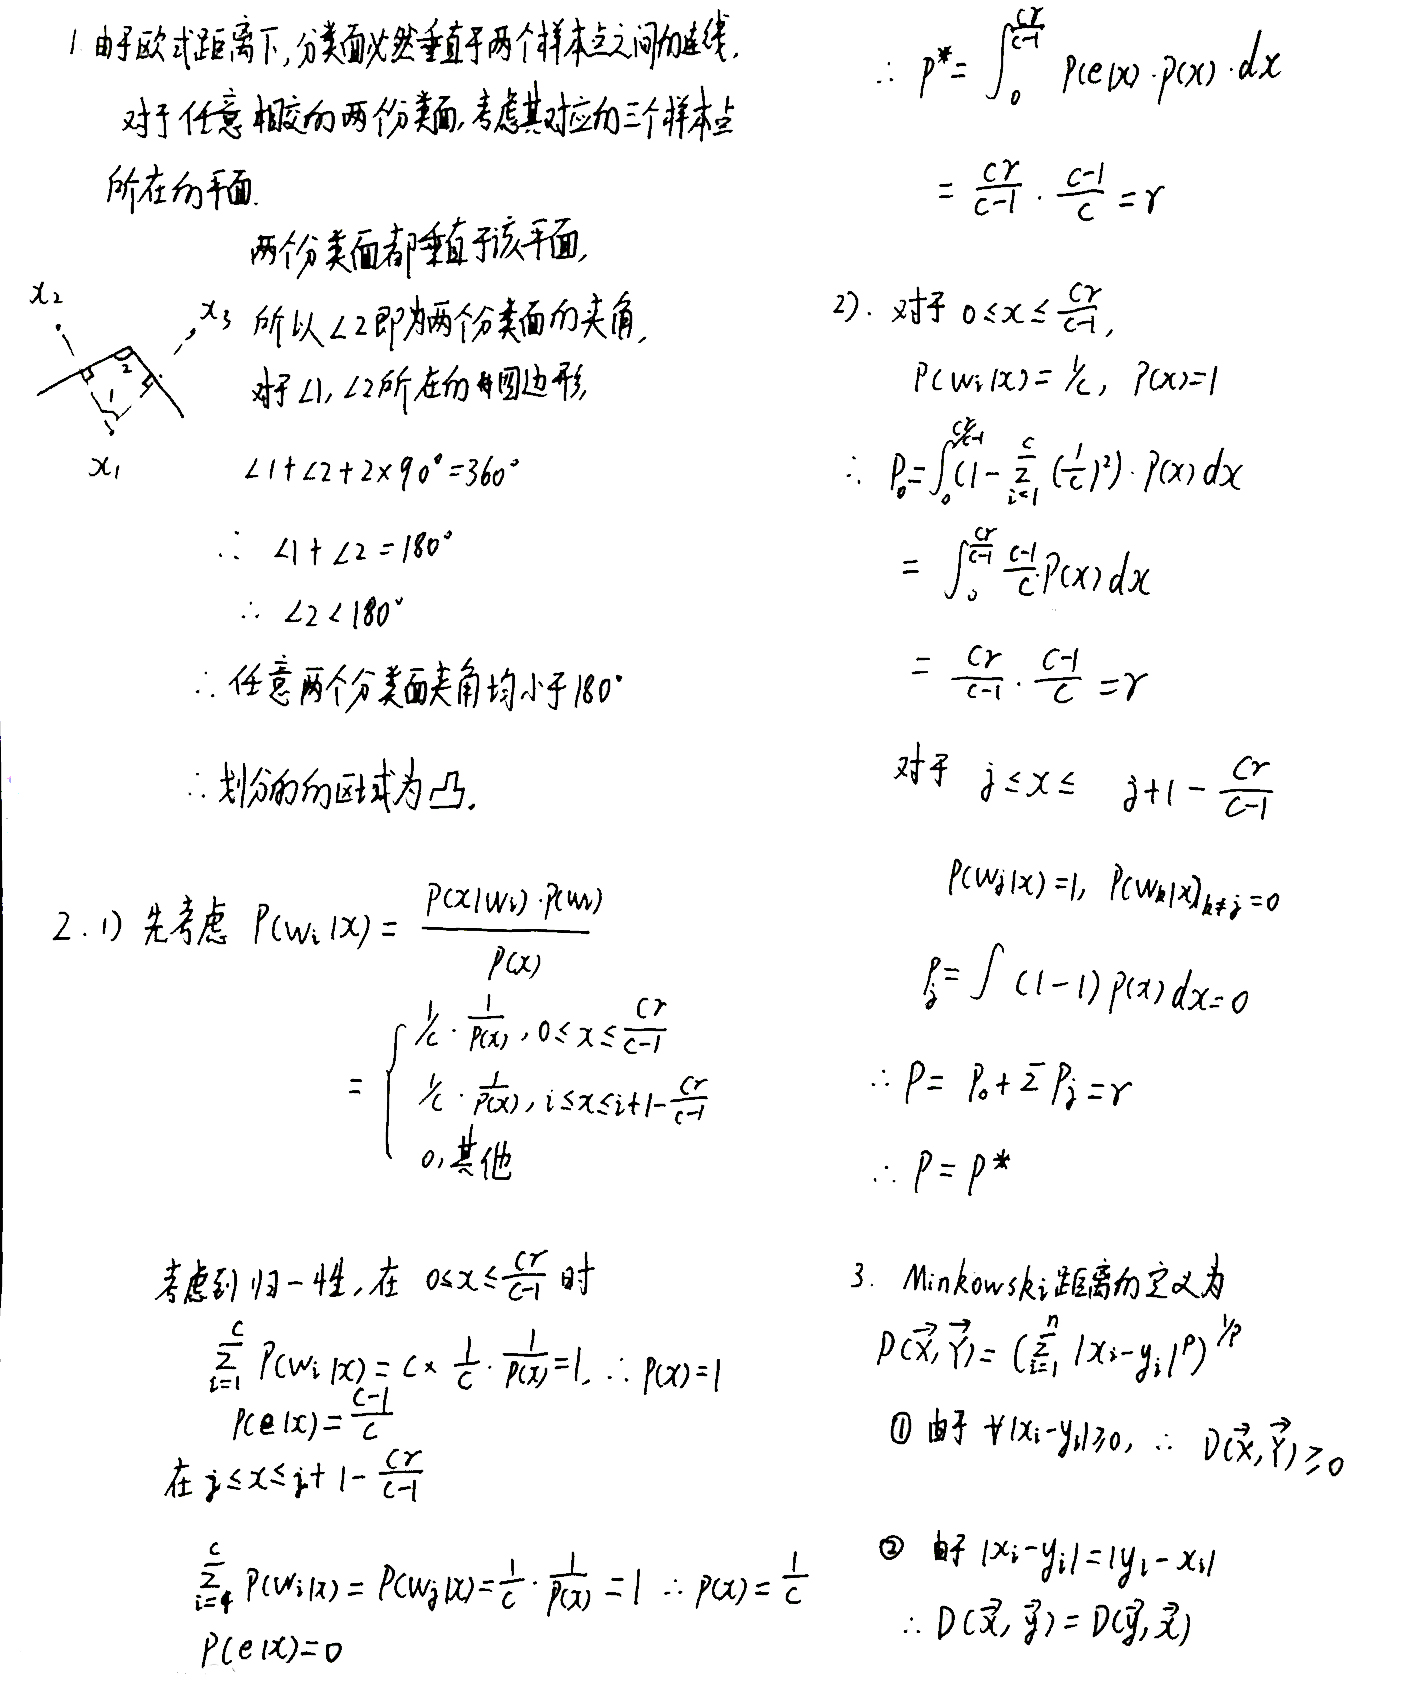 1 由于欧式距离下,分类面必然垂直于两个样本点之间的连线.
对于任意相交的两个分类面,考虑其对应的三个样本点
所在的平面.
两个分类面都垂直于该平面,
所以∠2即为两个分类面的夹角,
对于∠1,∠2所在的四边形,
x₂
x₃
2
1
x₁
∠1+∠2+2×90°=360°
∴ ∠1+∠2=180°
∴ ∠2<180°
∴任意两个分类面夹角均小于180°
∴划分的的区域为凸.
2.1) 先考虑 P(wᵢ|x) = P(x|wᵢ)·P(wᵢ) / P(x)
= { 1/c · 1/P(x), 0≤x≤ cr/(c-1)
1/c · 1/P(x), i≤x≤i+1- cr/(c-1)
0,其他
考虑到归一性,在 0≤x≤ cr/(c-1) 时
Σᵢ₌₁ᶜ P(wᵢ|x) = c× 1/c · 1/P(x) =1, ∴ P(x)=1
P(e|x) = (c-1)/c
在 j≤x≤j+1- cr/(c-1)
Σᶜ P(wᵢ|x) = P(wⱼ|x) = 1/c · 1/P(x) =1 ∴ P(x) = 1/c
P(e|x)=0
∴ P* = ∫₀^(cr/(c-1)) P(e|x)·P(x)·dx
= cr/(c-1) · (c-1)/c = r
2). 对于 0≤x≤ cr/(c-1),
P(wᵢ|x) = 1/c, P(x)=1
∴ P₀ = ∫₀^(cr/(c-1)) (1- Σᵢ₌₁ᶜ (1/c)²)·P(x)dx
= ∫₀^(cr/(c-1)) (c-1)/c P(x)dx
= cr/(c-1) · (c-1)/c = r
对于 j≤x≤ j+1- cr/(c-1)
P(wⱼ|x)=1, P(wₖ|x)ₖ≠ⱼ=0
Pⱼ = ∫ (1-1)P(x)dx=0
∴ P = P₀+ΣPⱼ=r
∴ P = P*
3. Minkowski距离的定义为
D(X⃗,Y⃗) = (Σᵢ₌₁ⁿ |xᵢ-yᵢ|ᵖ)^(1/p)
① 由于 ∀|xᵢ-yᵢ|≥0, ∴ D(X⃗,Y⃗)≥0
② 由于 |xᵢ-yᵢ|=|yᵢ-xᵢ|
∴ D(x⃗,y⃗) = D(y⃗,x⃗)